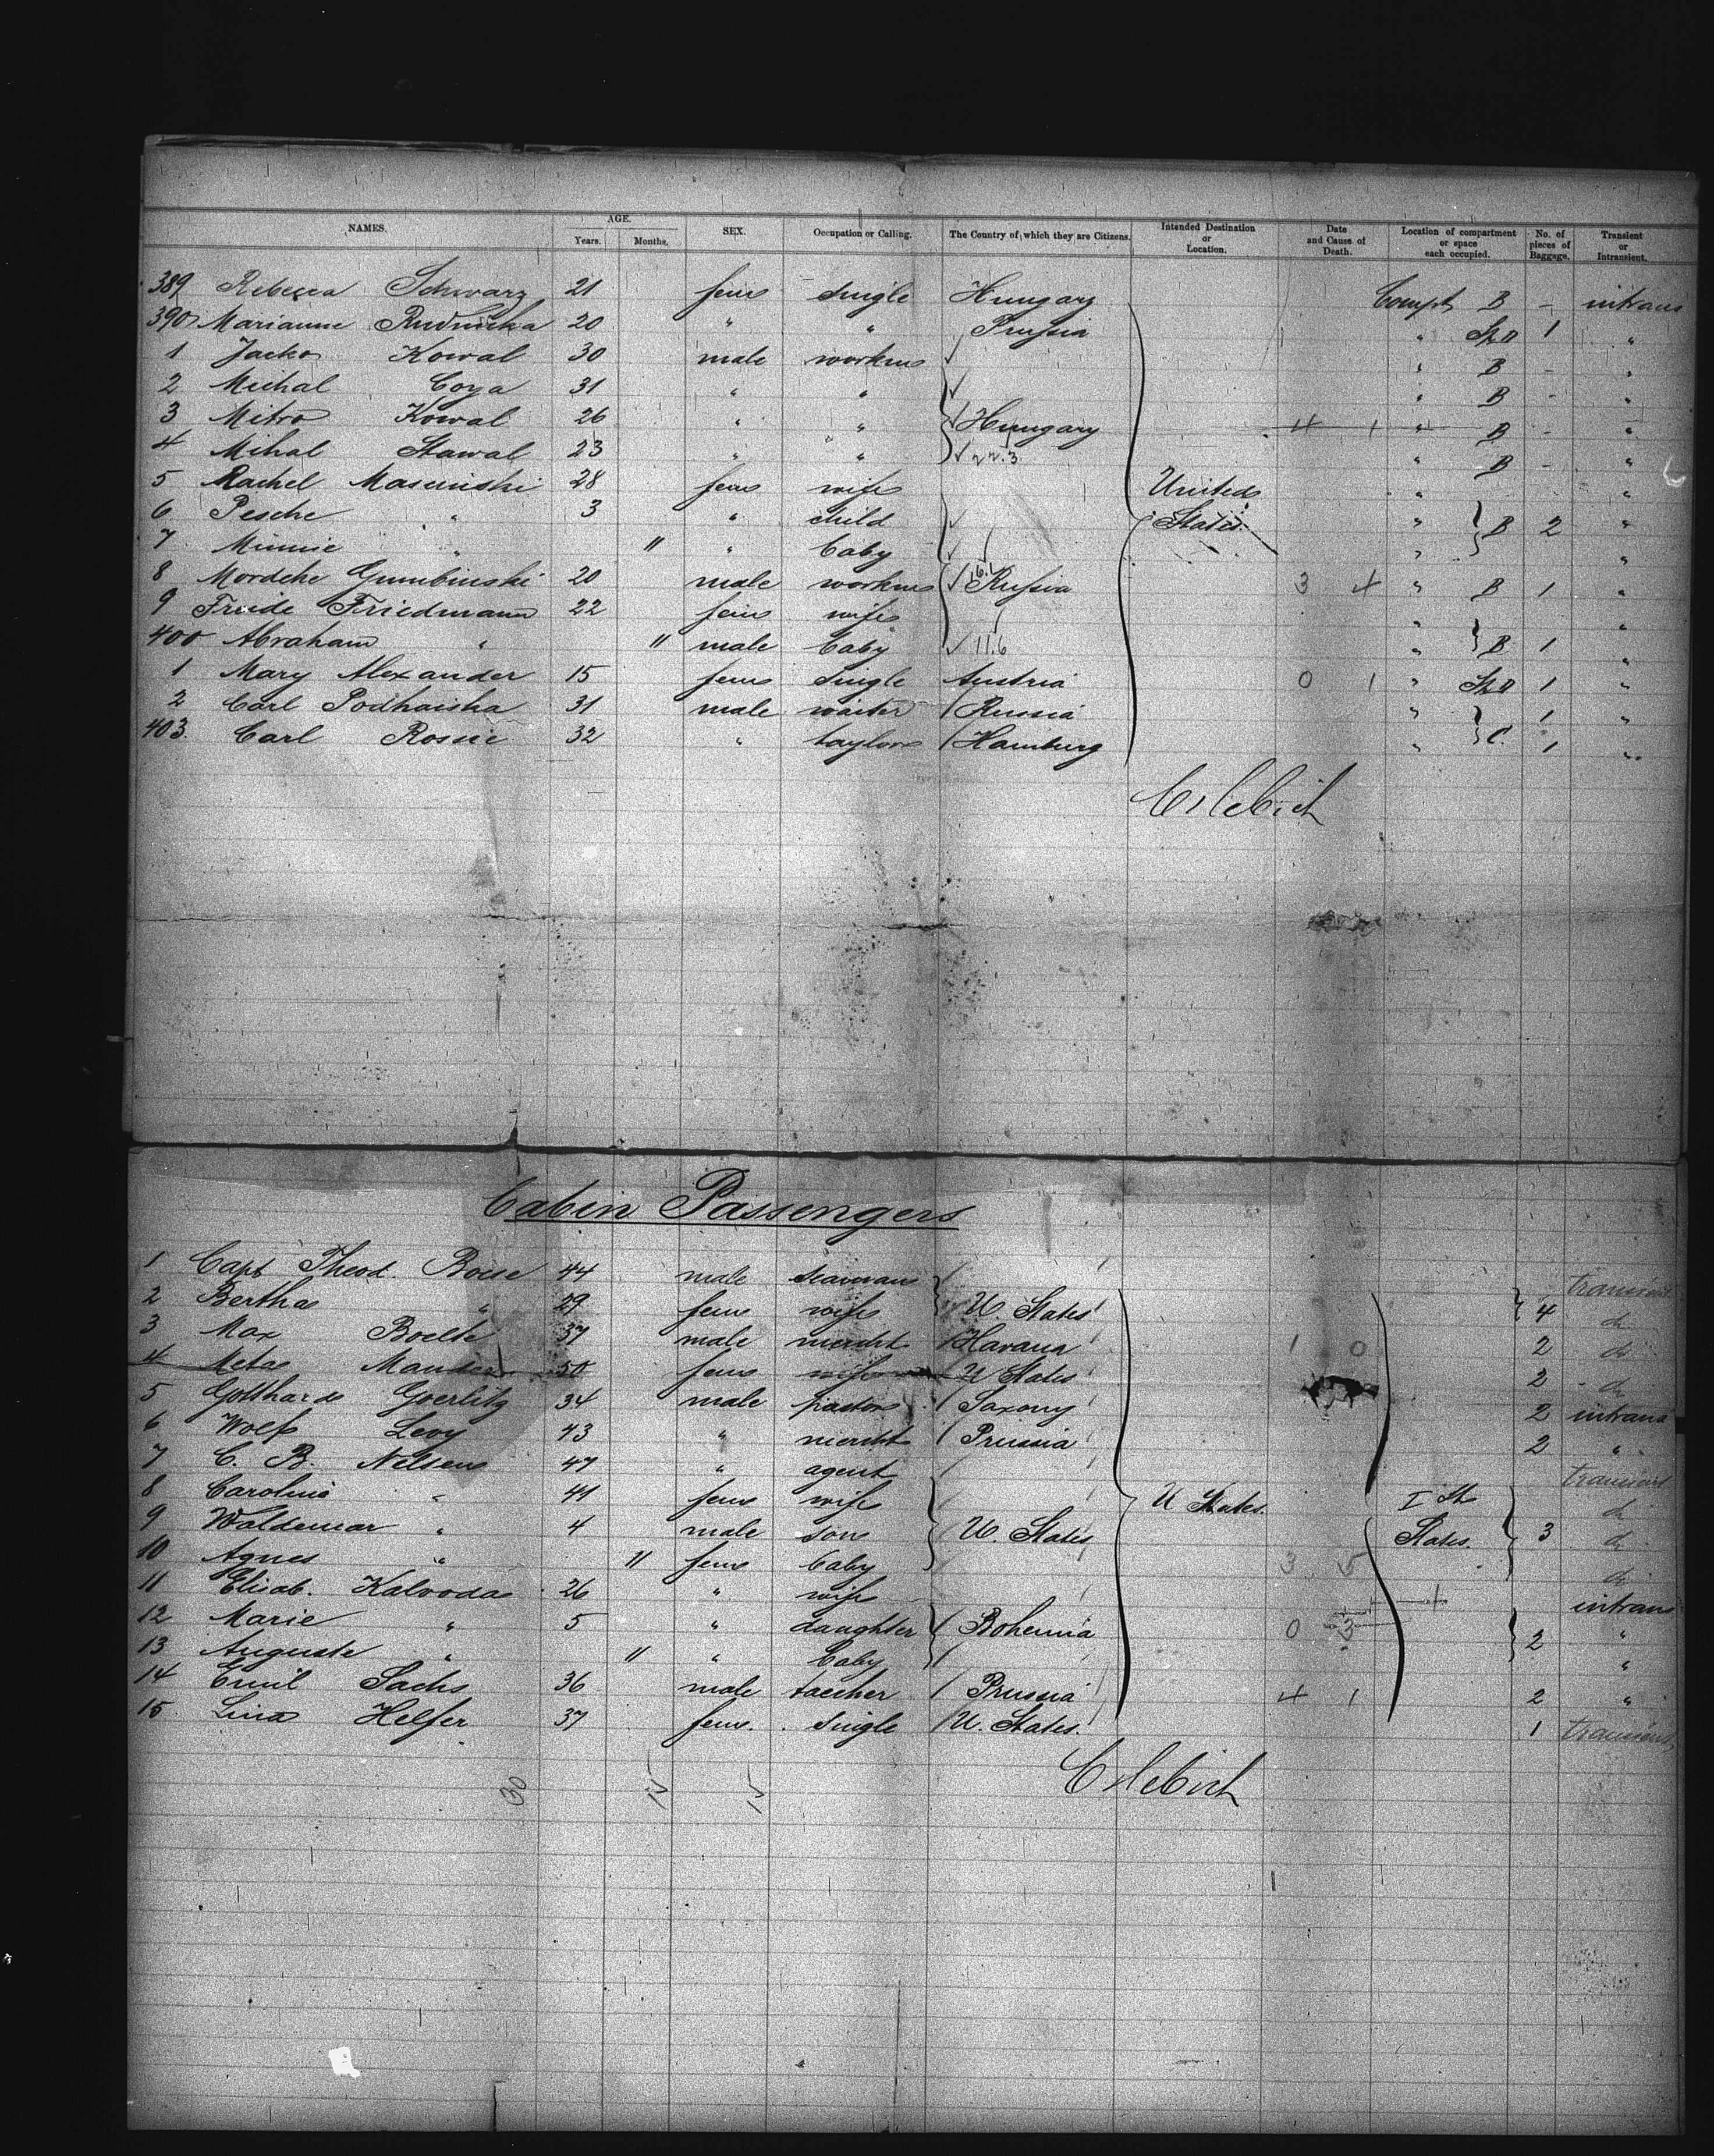 NAMES. AGE. Years. Months. SEX. Occupation or Calling. The Country of which they are Citizens. Intended Destination or Location. Date and Cause of Death. Location of compartment or space each occupied. No. of pieces of Baggage. Transient or Intransient.
389 Rebecca Schwarz 21 fem single Hungary Compt B - intrans
390 Marianne Rudnicka 20 " " Prussia " 1 "
1 Jacko Kowal 30 male workm " B - "
2 Michal Coya 31 " " " B - "
3 Mitro Kowal 26 " " Hungary 4 1 " B - "
4 Mihal Stawal 23 " " 22.3 " B - "
5 Rachel Mascinski 28 fem wife United " "
6 Pesche " 3 " child States. " B 2 "
7 Minnie " 11 " baby " "
8 Mordche Gumbinski 20 male workm 16.1 Russia 3 4 " B 1 "
9 Freide Friedmann 22 fem wife " "
400 Abraham " 11 male baby 11.6 " B 1 "
1 Mary Alexander 15 fem single Austria 0 1 " 1 "
2 Carl Podhaiska 31 male waiter Russia " 1 "
403. Carl Rossie 32 " taylor Hamburg " C. 1 "
Cabin Passengers
1 Capt Theod. Boese 44 male seaman transient
2 Bertha " 29 fem wife U. States 4 do
3 Max Boelte 37 male mercht Havana 1 0 2 do
4 Meta 50 fem wife U States 2 do
5 Gotthard Goerlitz 34 male pastor Saxony 2 intrans
6 Wolf Levy 43 " mercht Prussia 2 "
7 C. B. Nelsen 47 " agent transient
8 Carolina " 41 fem wife U States. I do
9 Waldemar " 4 male son U. States States. 3 do
10 Agnes " 11 fem baby 3 5 do
11 Elisab. Kalvoda 26 " wife intrans
12 Marie " 5 " daughter Bohemia 0 3 2 "
13 Auguste " 11 " baby "
14 Emil Sachs 36 male taecher Prussia 4 1 2 "
15 Lina Helfer 37 fem. single U. States. 1 transient
30 15 15